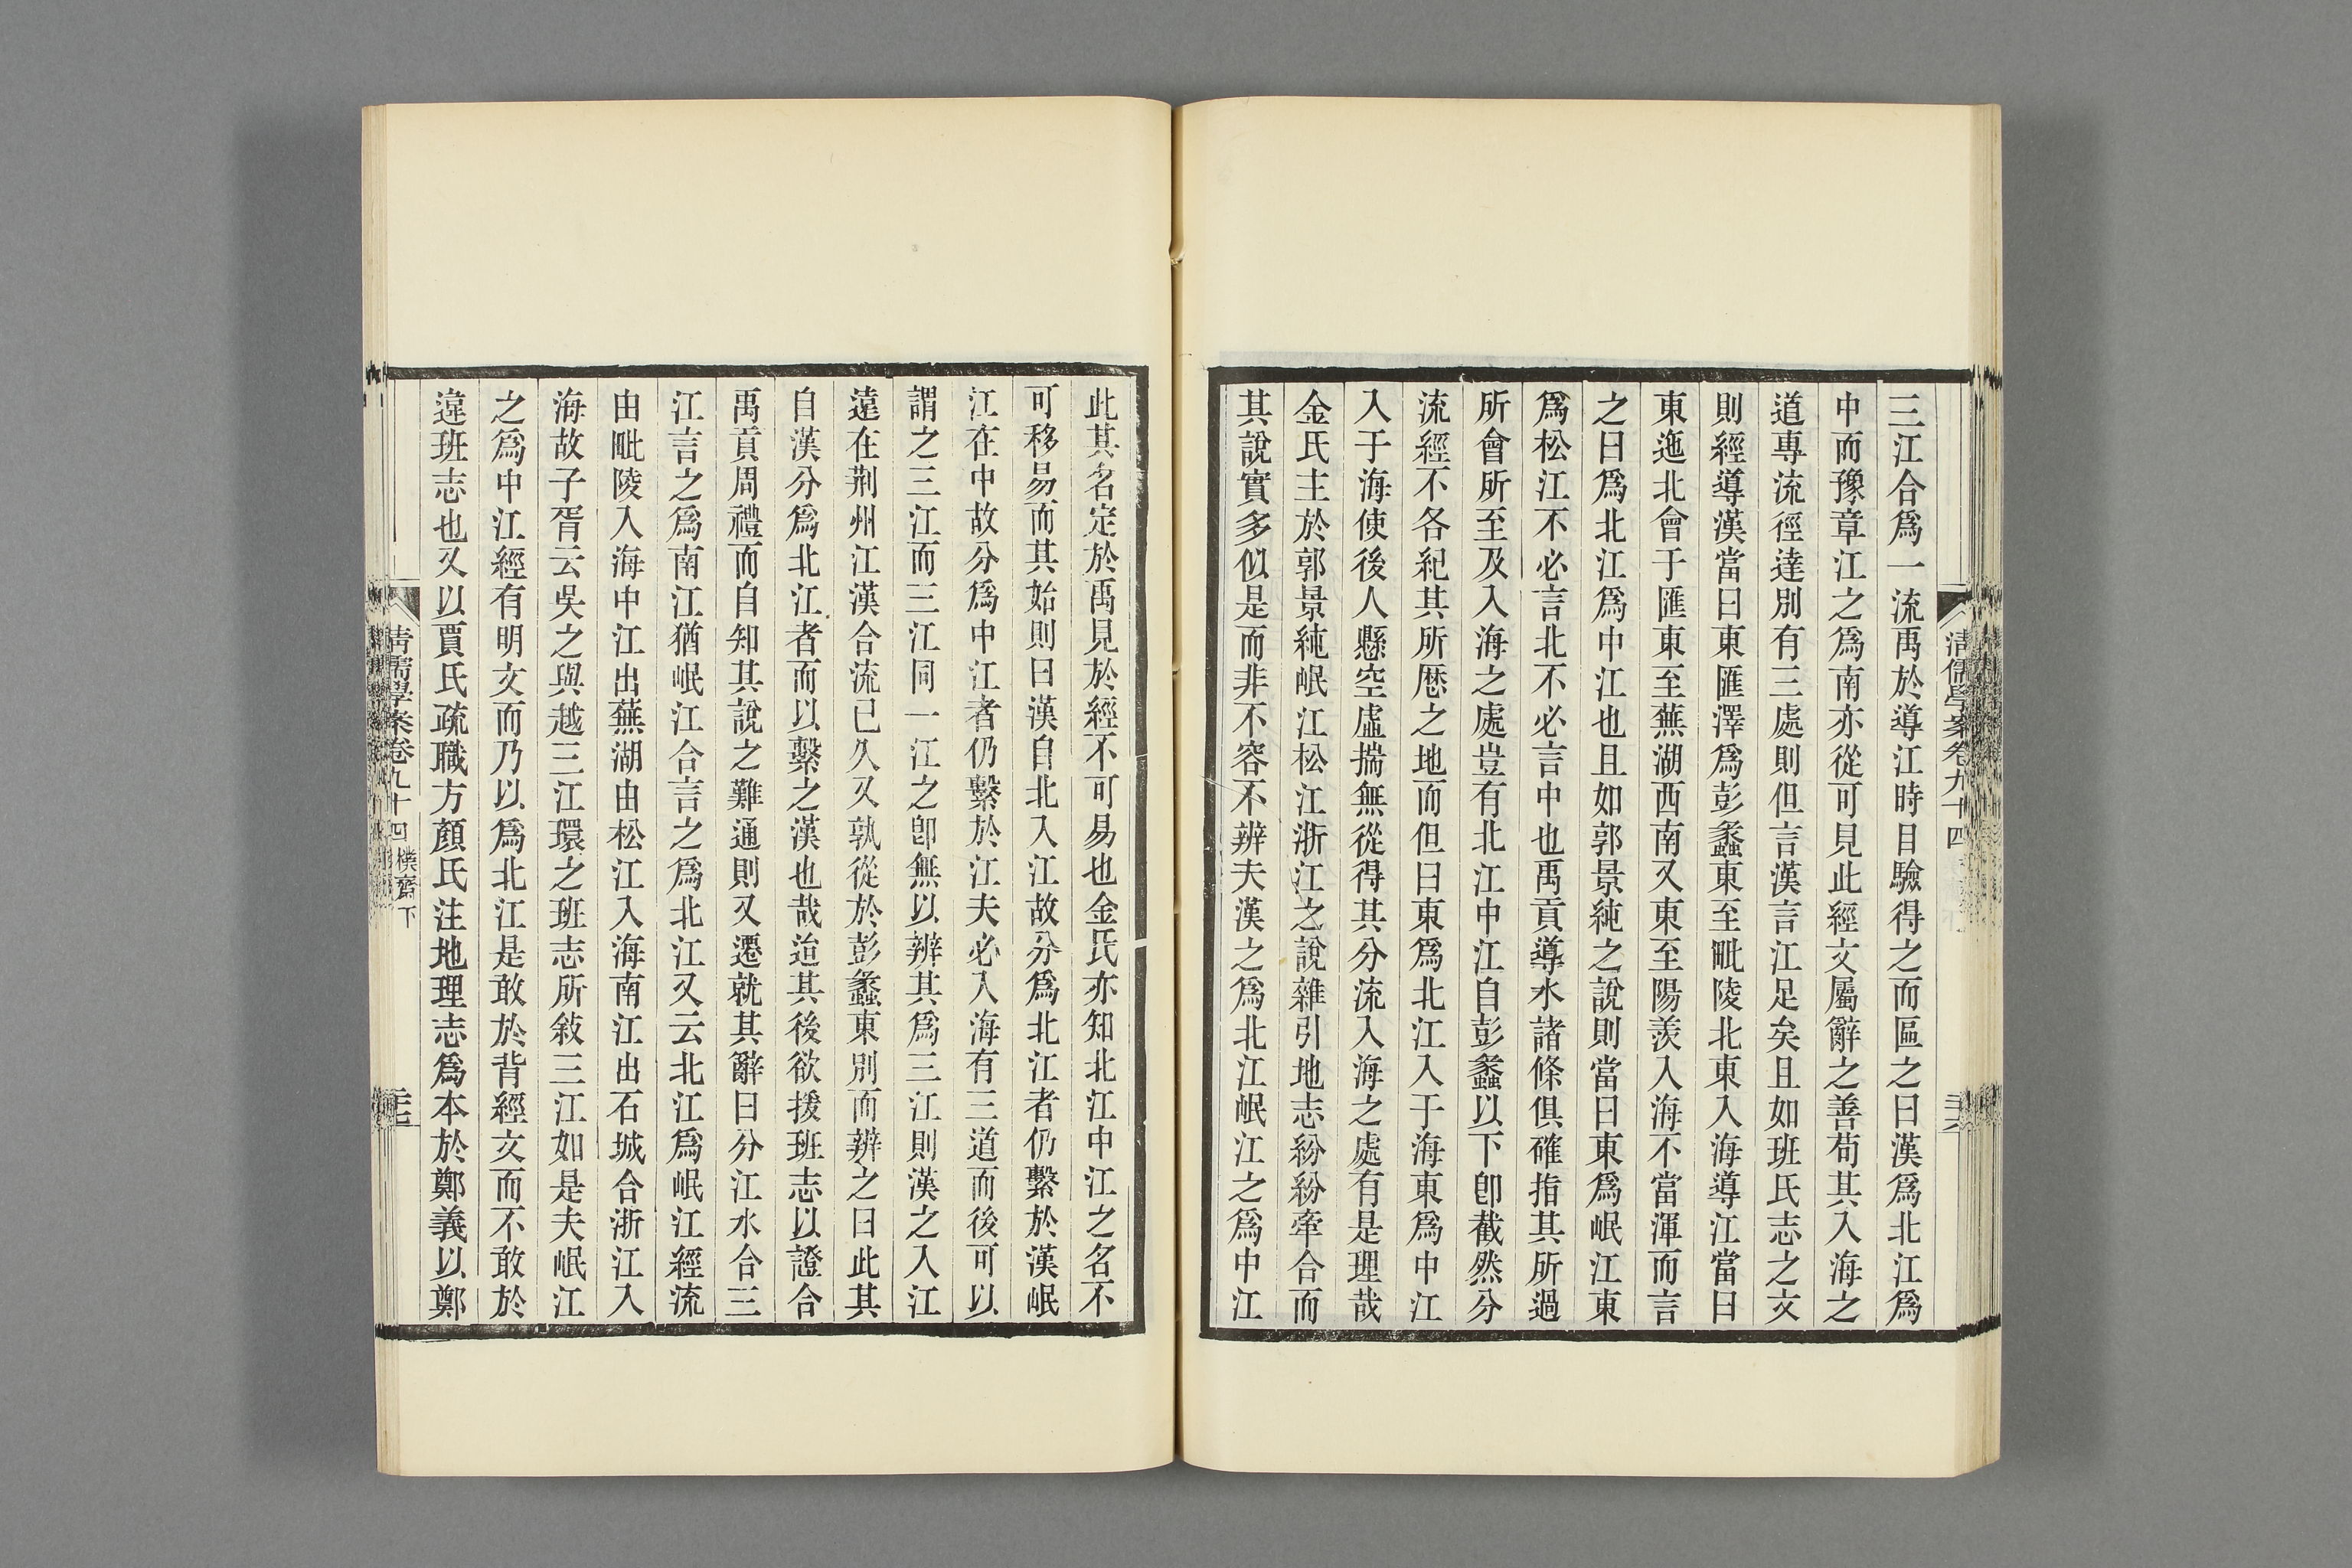 清儒學案卷九十四
三江合爲一流禹於導江時目驗得之而區之曰漢爲北江爲
中而豫章江之爲南亦從可見此經文屬辭之善苟其入海之
道專流徑達別有三處則但言漢言江足矣且如班氏志之文
則經導漢當曰東匯澤爲彭蠡東至毗陵北東入海導江當曰
東迤北會于匯東至蕪湖西南又東至陽羨入海不當渾而言
之曰爲北江爲中江也且如郭景純之說則當曰東爲岷江東
爲松江不必言北不必言中也禹貢導水諸條俱確指其所過
所會所至及入海之處豈有北江中江自彭蠡以下卽截然分
流經不各紀其所厯之地而但曰東爲北江入于海東爲中江
入于海使後人懸空虛揣無從得其分流入海之處有是理哉
金氏主於郭景純岷江松江浙江之說雜引地志紛紛牽合而
其說實多似是而非不容不辨夫漢之爲北江岷江之爲中江
此其名定於禹見於經不可易也金氏亦知北江中江之名不
可移易而其始則曰漢自北入江故分爲北江者仍繫於漢岷
江在中故分爲中江者仍繫於江夫必入海有三道而後可以
謂之三江而三江同一江之卽無以辨其爲三江則漢之入江
遠在荆州江漢合流已久又孰從於彭蠡東別而辨之曰此其
自漢分爲北江者而以繫之漢也哉迨其後欲援班志以證合
禹貢周禮而自知其說之難通則又遷就其辭曰分江水合三
江言之爲南江猶岷江合言之爲北江又云北江爲岷江經流
由毗陵入海中江出蕪湖由松江入海南江出石城合浙江入
海故子胥云吳之與越三江環之班志所敍三江如是夫岷江
之爲中江經有明文而乃以爲北江是敢於背經文而不敢於
違班志也又以賈氏疏職方顏氏注地理志爲本於鄭義以鄭
清儒學案卷九十四 樸齋下